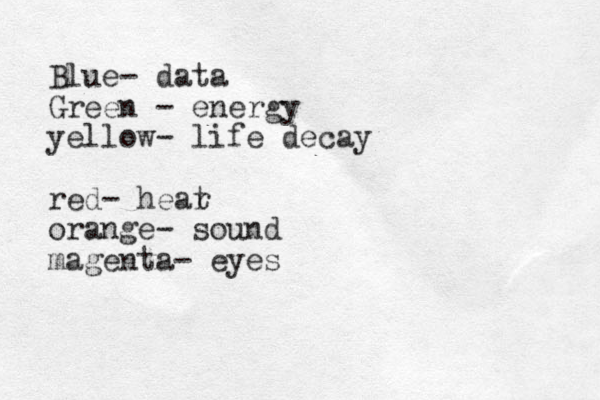 Blue- data
Green - energy
yellow- life decay
red- heat
orange- sound
magenta- eyes